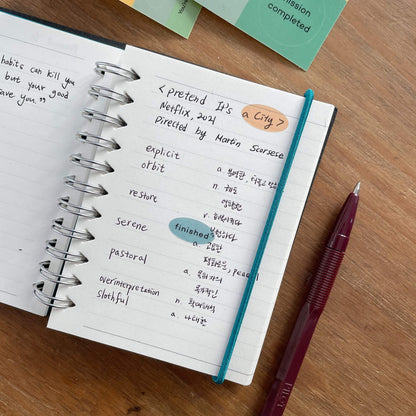 mission
completed
habits can kill you
but your good
save you."
<pretend It's
a City>
Netflix, 2021
Directed by Martin Scorsese
explicit
orbit
n. 궤도
restore
v. 회복시키다
복원하다
serene
finished
a. 고요한
평화로운, peaceful
pastoral
a. 목회자의
목가적인
overinterpretation
n. 확대해석
slothful
a. 나태한